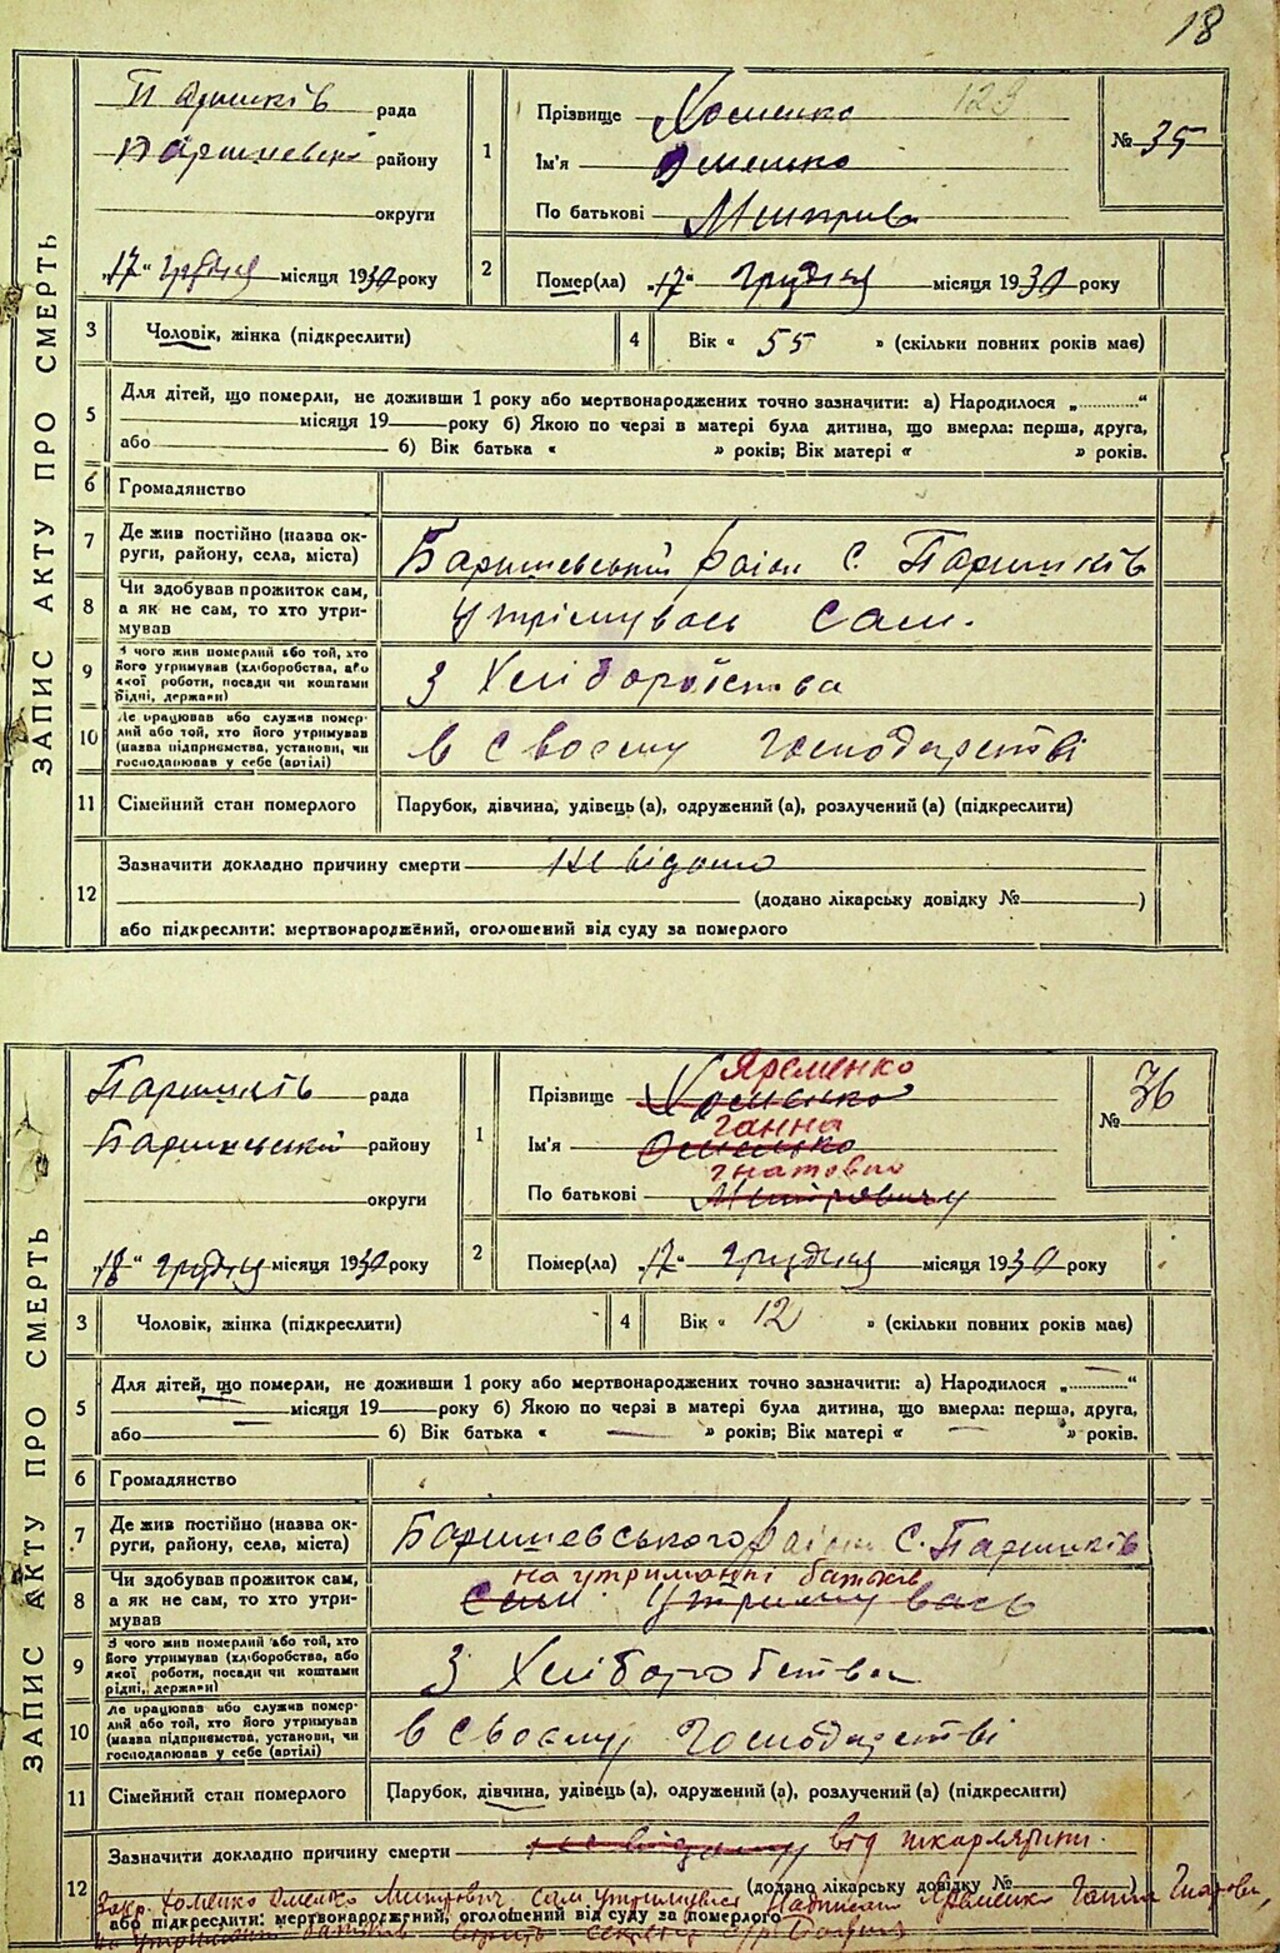 18
ЗАПИС АКТУ ПРО СМЕРТЬ
Паришків рада
Баришевськ району
округи
„17“ грудня місяця 1930 року
1
Прізвище Хоменко 123
Ім'я Омелько
По батькові Митров
№ 35
2
Помер(ла) „17“ грудня місяця 1930 року
3 Чоловік, жінка (підкреслити)
4 Вік « 55 » (скільки повних років має)
5 Для дітей, що померли, не доживши 1 року або мертвонароджених точно зазначити: а) Народилося „.............“
місяця 19 року б) Якою по черзі в матері була дитина, що вмерла: перша, друга,
або б) Вік батька « » років; Вік матері « » років.
6 Громадянство
7 Де жив постійно (назва ок-
руги, району, села, міста)
Баришевський район с. Паришків
8 Чи здобував прожиток сам,
а як не сам, то хто утри-
мував
Утрімувавсь сам.
9 З чого жив померлий або той, хто
його утримував (хліборобства, або
якої роботи, посади чи коштами
рідні, держави)
З Хліборобства
10 Де працював або служив помер-
лий або той, хто його утримував
(назва підприємства, установи, чи
господарював у себе (артілі)
в своєму господарстві
11 Сімейний стан померлого
Парубок, дівчина, удівець (а), одружений (а), розлучений (а) (підкреслити)
12 Зазначити докладно причину смерти невідомо
(додано лікарську довідку № )
або підкреслити: мертвонароджений, оголошений від суду за померлого
ЗАПИС АКТУ ПРО СМЕРТЬ
Паришків рада
Баришевський району
округи
„18“ грудня місяця 1930 року
1
Яременко
Прізвище Хоменко
Ганна
Ім'я Омелько
Гнатовна
По батькові Митровичу
№ 36
2
Помер(ла) „17“ грудня місяця 1930 року
3 Чоловік, жінка (підкреслити)
4 Вік « 12 » (скільки повних років має)
5 Для дітей, що померли, не доживши 1 року або мертвонароджених точно зазначити: а) Народилося „.............“
місяця 19 року б) Якою по черзі в матері була дитина, що вмерла: перша, друга,
або б) Вік батька « — » років; Вік матері « — » років.
6 Громадянство
7 Де жив постійно (назва ок-
руги, району, села, міста)
Баришевського район с. Паришків
8 Чи здобував прожиток сам,
а як не сам, то хто утри-
мував
на утриманні батьків
сам утримувавсь
9 З чого жив померлий або той, хто
його утримував (хліборобства, або
якої роботи, посади чи коштами
рідні, держави)
З Хліборобства
10 Де працював або служив помер-
лий або той, хто його утримував
(назва підприємства, установи, чи
господарював у себе (артілі)
в своєму господарстві
11 Сімейний стан померлого
Парубок, дівчина, удівець (а), одружений (а), розлучений (а) (підкреслити)
12 Зазначити докладно причину смерти від шкарлятини.
(додано лікарську довідку № )
Закр. Хоменко Омелько Митрович сам утримувався Надписано Яременко Ганна Гнатовн,
або підкреслити: мертвонароджений, оголошений від суду за померлого
на утриманні батьків секретар с/р